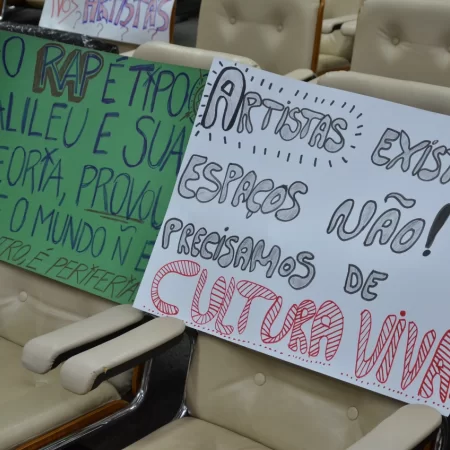 ARTISTAS
O RAP É TIPO
GALILEU E SUA
TEORIA, PROVOU
QUE O MUNDO Ñ É
CENTRO, É PERIFERIA
ARTISTAS EXIST
ESPAÇOS NÃO!
PRECISAMOS DE
CULTURA VIVA